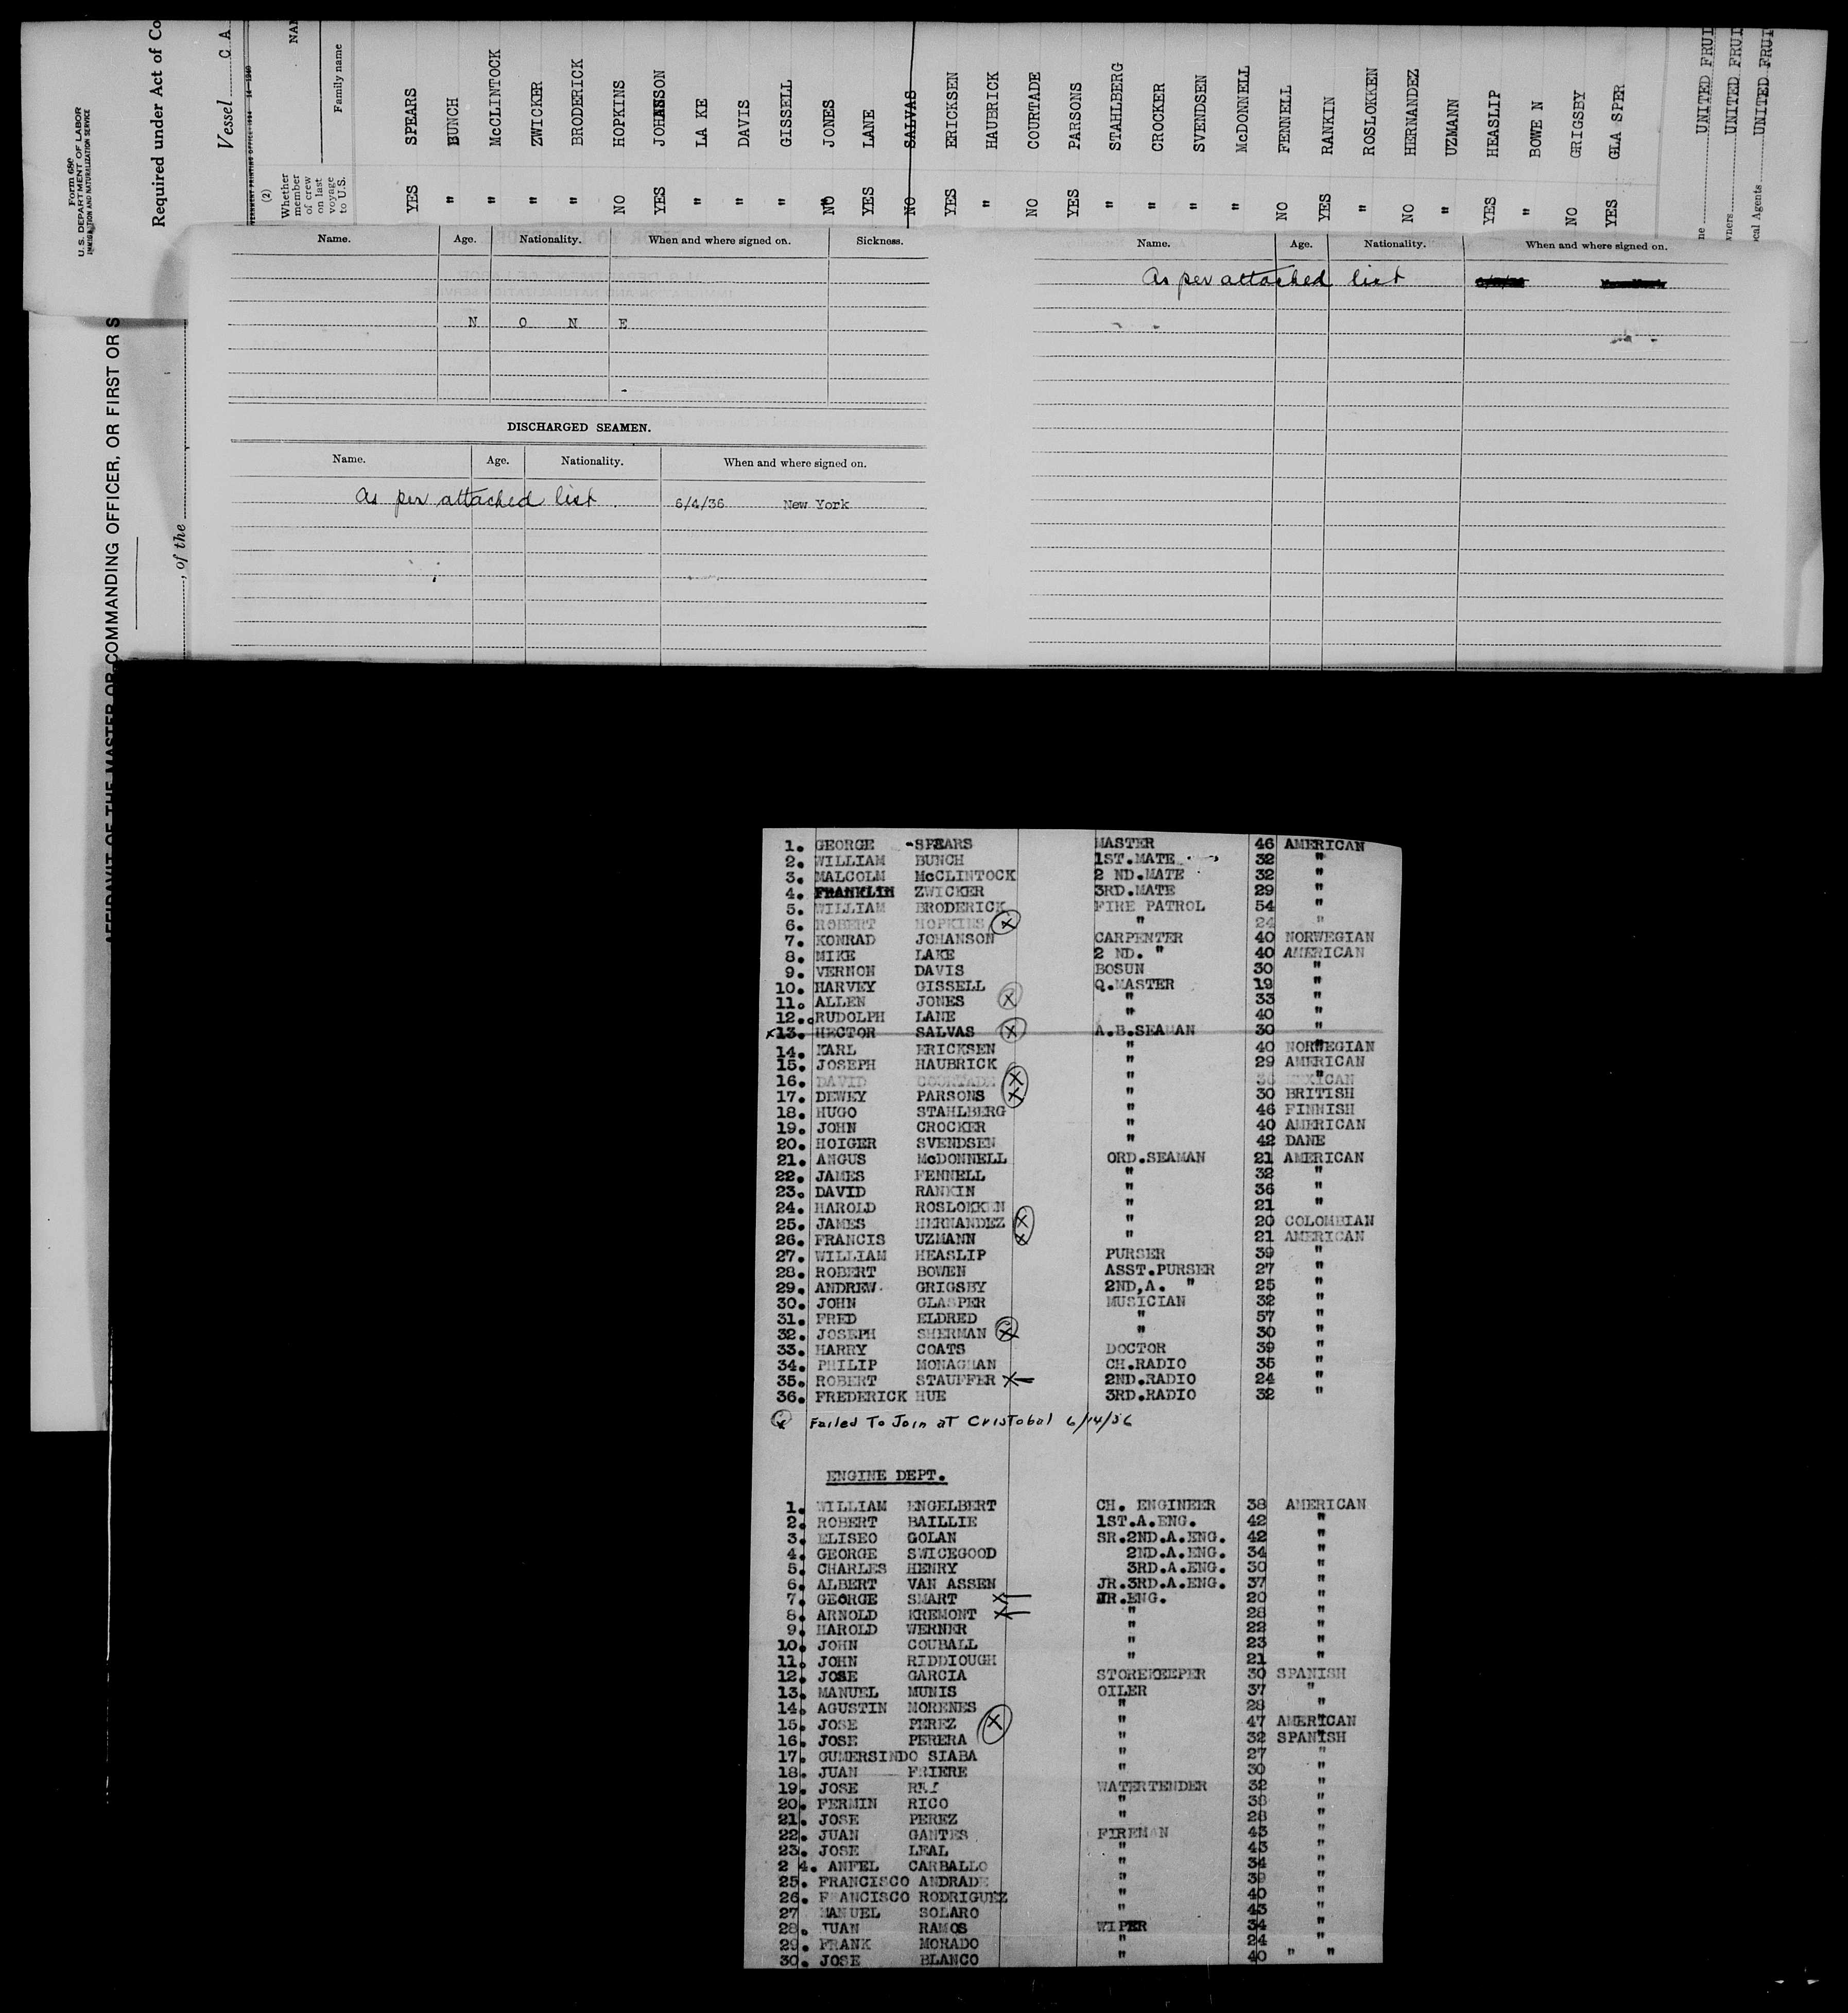 Form 680
U.S. DEPARTMENT OF LABOR
IMMIGRATION AND NATURALIZATION SERVICE
Required under Act of Co
Vessel C A
(2)
Whether member of crew on last voyage to U.S.
NA
Family name
YES SPEARS
" BUNCH
" McCLINTOCK
" ZWICKER
" BRODERICK
NO HOPKINS
YES JOHANSON
" LA KE
" DAVIS
" GISSELL
NO JONES
YES LANE
NO SALVAS
YES ERICKSEN
" HAUBRICK
NO COURTADE
YES PARSONS
" STAHLBERG
" CROCKER
" SVENDSEN
" McDONNELL
NO FENNELL
YES RANKIN
" ROSLOKKEN
NO HERNANDEZ
" UZMANN
YES HEASLIP
" BOWE N
NO GRIGSBY
YES GLA SPER
ne UNITED FRUI
wners UNITED FRUI
ocal Agents UNITED FRUI
AFFIDAVIT OF THE MASTER OR COMMANDING OFFICER, OR FIRST OR S
, of the
Name. Age. Nationality. When and where signed on. Sickness.
N O N E
DISCHARGED SEAMEN.
Name. Age. Nationality. When and where signed on.
As per attached list 6/4/36 New York
Name. Age. Nationality. When and where signed on.
As per attached list
1. GEORGE SPEARS MASTER 46 AMERICAN
2. WILLIAM BUNCH 1ST.MATE 32 "
3. MALCOLM McCLINTOCK 2 ND.MATE 32 "
4. FRANKLIN ZWICKER 3RD.MATE 29 "
5. WILLIAM BRODERICK FIRE PATROL 54 "
6. ROBERT HOPKINS X " 24 "
7. KONRAD JOHANSON CARPENTER 40 NORWEGIAN
8. MIKE LAKE 2 ND. " 40 AMERICAN
9. VERNON DAVIS BOSUN 30 "
10. HARVEY GISSELL Q.MASTER 19 "
11. ALLEN JONES X " 33 "
12. RUDOLPH LANE " 40 "
x13. HECTOR SALVAS X A.B.SEAMAN 30 "
14. KARL ERICKSEN " 40 NORWEGIAN
15. JOSEPH HAUBRICK " 29 AMERICAN
16. DAVID COURTADE X " MEXICAN
17. DEWEY PARSONS X " 30 BRITISH
18. HUGO STAHLBERG " 46 FINNISH
19. JOHN CROCKER " 40 AMERICAN
20. HOIGER SVENDSEN " 42 DANE
21. ANGUS McDONNELL ORD.SEAMAN 21 AMERICAN
22. JAMES FENNELL " 32 "
23. DAVID RANKIN " 36 "
24. HAROLD ROSLOKKEN " 21 "
25. JAMES HERNANDEZ X " 20 COLOMBIAN
26. FRANCIS UZMANN X " 21 AMERICAN
27. WILLIAM HEASLIP PURSER 39 "
28. ROBERT BOWEN ASST.PURSER 27 "
29. ANDREW GRIGSBY 2ND,A. " 25 "
30. JOHN GLASPER MUSICIAN 32 "
31. FRED ELDRED " 57 "
32. JOSEPH SHERMAN X " 30 "
33. HARRY COATS DOCTOR 39 "
34. PHILIP MONAGHAN CH.RADIO 35 "
35. ROBERT STAUFFER X 2ND.RADIO 24 "
36. FREDERICK HUE 3RD.RADIO 32 "
x Failed To Join aT CrisTobal 6/14/36
ENGINE DEPT.
1. WILLIAM ENGELBERT CH. ENGINEER 38 AMERICAN
2. ROBERT BAILLIE 1ST.A.ENG. 42 "
3. ELISEO GOLAN SR.2ND.A.ENG. 42 "
4. GEORGE SWICEGOOD 2ND.A.ENG. 34 "
5. CHARLES HENRY 3RD.A.ENG. 30 "
6. ALBERT VAN ASSEN JR.3RD.A.ENG. 37 "
7. GEORGE SMART X JR.ENG. 20 "
8. ARNOLD KREMONT X " 28 "
9. HAROLD WERNER " 22 "
10. JOHN COUBALL " 23 "
11. JOHN RIDDIOUGH " 21 "
12. JOSE GARCIA STOREKEEPER 30 SPANISH
13. MANUEL MUNIS OILER 37 "
14. AGUSTIN MORENES " 28 "
15. JOSE PEREZ X " 47 AMERICAN
16. JOSE PERERA " 32 SPANISH
17. GUMERSINDO SIABA " 27 "
18. JUAN FRIERE " 30 "
19. JOSE WATERTENDER 32 "
20. FERMIN RICO " 38 "
21. JOSE PEREZ " 28 "
22. JUAN GANTES FIREMAN 43 "
23. JOSE LEAL " 43 "
2 4. ANFEL CARBALLO " 34 "
25. FRANCISCO ANDRADE " 39 "
26. F ANCISCO RODRIGUEZ " 40 "
27 MANUEL SOLARO " 43 "
28. JUAN RAMOS WIPER 34 "
29. FRANK MORADO " 24 "
30. JOSE BLANCO " 40 " "